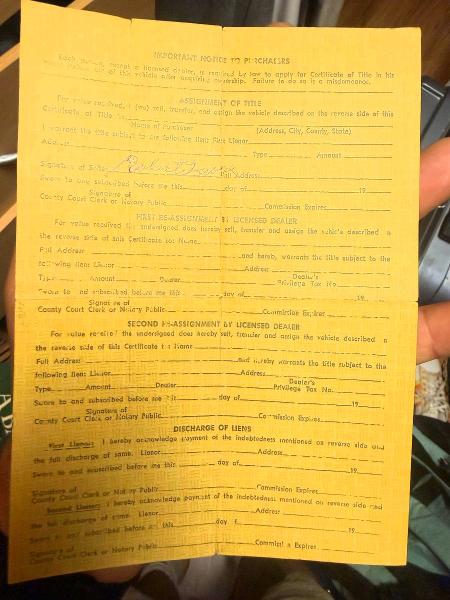 IMPORTANT NOTICE TO PURCHASERS
Each person, except a licensed dealer, is required by law to apply for Certificate of Title in his
name of this vehicle after acquiring ownership. Failure to do so is a misdemeanor.
ASSIGNMENT OF TITLE
For value received, I (we) sell, transfer, and assign the vehicle described on the reverse side of this
Certificate of Title To
Name of Purchaser (Address, City, County, State)
I warrant the title subject to the following lien: First Lienor
Address Type Amount
Signature of Seller Robert Full Address
Sworn to and subscribed before me this day of 19
Signature of
County Court Clerk or Notary Public Commission Expires
FIRST RE-ASSIGNMENT BY LICENSED DEALER
For value received the undersigned does hereby sell, transfer and assign the vehicle described on
the reverse side of this Certificate to: Name
Full Address and hereby, warrants the title subject to the
following lien: Lienor Address
Type Amount Dealer Dealer's
Privilege Tax No.
Sworn to and subscribed before me this day of 19
Signature of
County Court Clerk or Notary Public Commission Expires
SECOND RE-ASSIGNMENT BY LICENSED DEALER
For value received the undersigned does hereby sell, transfer and assign the vehicle described on
the reverse side of this Certificate to: Name
Full Address and hereby warrants the title subject to the
following lien: Lienor Address
Type Amount Dealer Dealer's
Privilege Tax No.
Sworn to and subscribed before me this day of 19
Signature of
County Court Clerk or Notary Public Commission Expires
DISCHARGE OF LIENS
First Lienor: I hereby acknowledge payment of the indebtedness mentioned on reverse side and
the full discharge of same. Lienor Address
Sworn to and subscribed before me this day of 19
Signature of
County Court Clerk or Notary Public Commission Expires
Second Lienor: I hereby acknowledge payment of the indebtedness mentioned on reverse side and
the full discharge of same. Lienor Address
Sworn to and subscribed before me this day of 19
Signature of
County Court Clerk or Notary Public Commission Expires